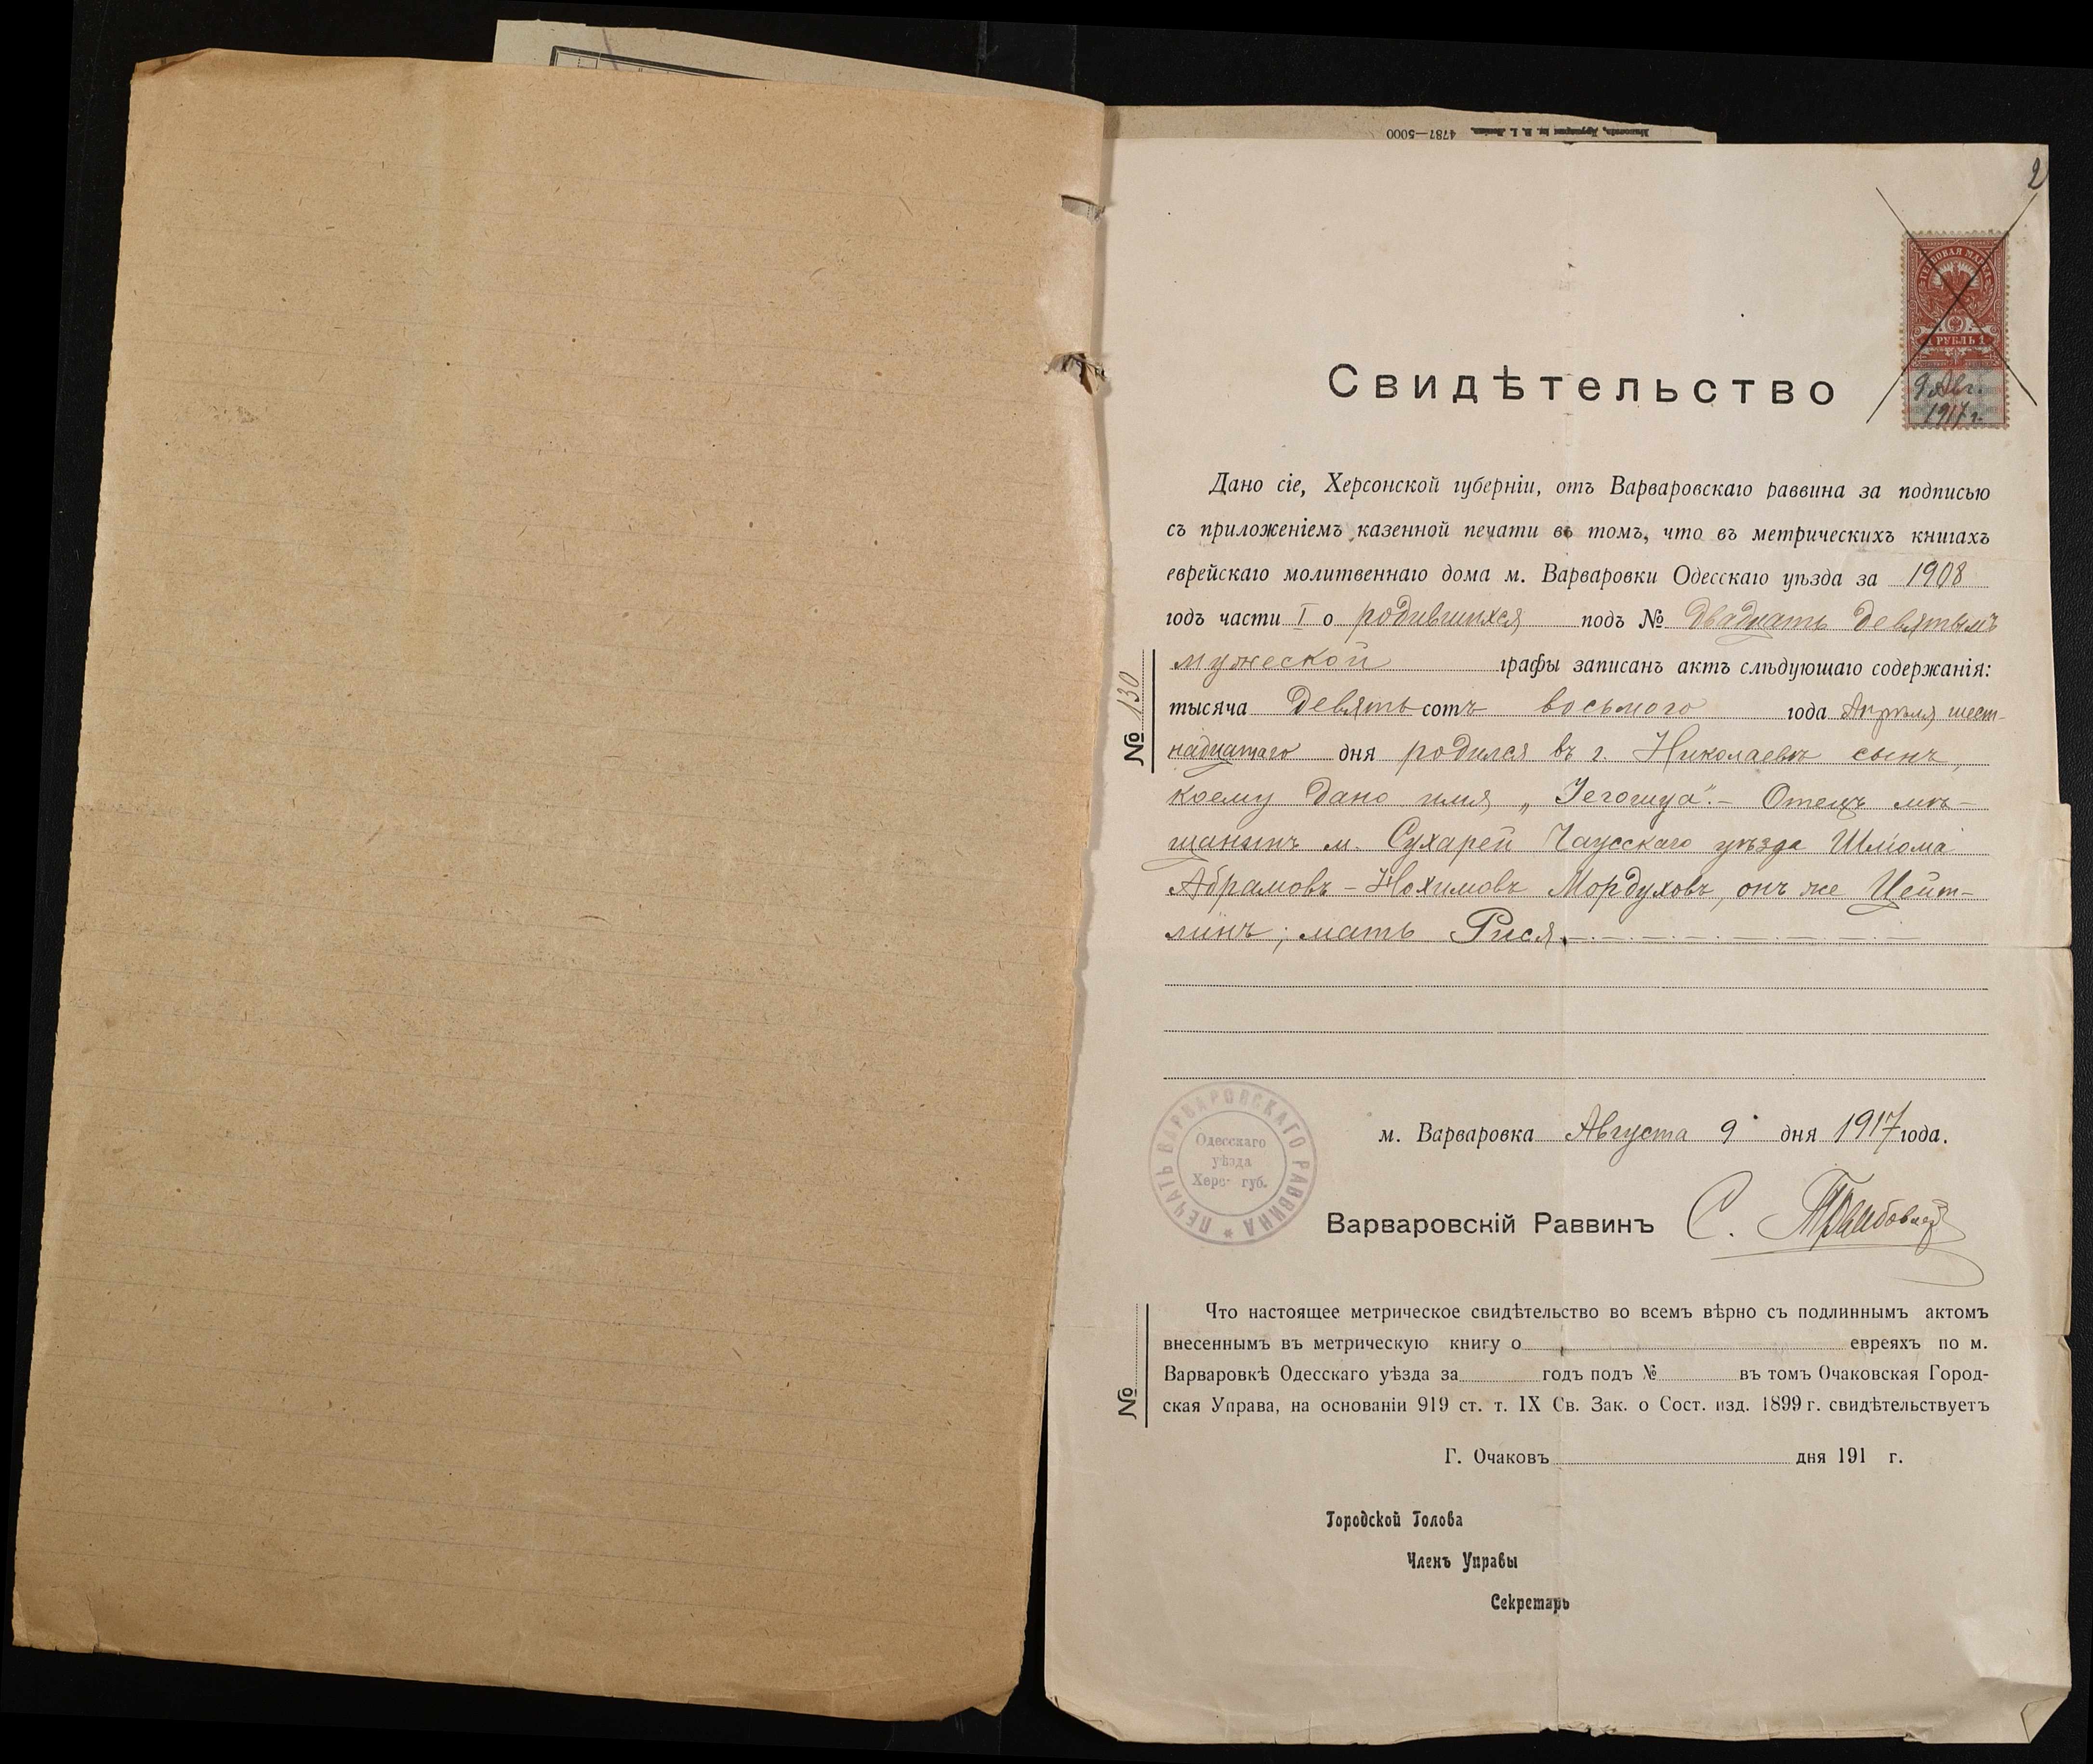 4787—5000
2
ГЕРБОВАЯ МАРКА
1 РУБЛЬ 1
9 Авг.
1917 г.
Свидѣтельство
Дано сіе, Херсонской губерніи, отъ Варваровскаго раввина за подписью
съ приложеніемъ казенной печати въ томъ, что въ метрическихъ книгахъ
еврейскаго молитвеннаго дома м. Варваровки Одесскаго уѣзда за 1908
годъ части I о родившихся подъ № двадцать девятымъ
мужеской графы записанъ актъ слѣдующаго содержанія:
№ 130
тысяча девять сотъ восьмого года Апрѣля шест-
надцатаго дня родился въ г. Николаевѣ сынъ,
коему дано имя „Іегошуа".— Отецъ мѣ-
щанинъ м. Сухарей Чаусскаго уѣзда Шліома
Абрамовъ-Нохимовъ Мордуховъ, онъ же Цейт-
линъ; мать Рися.
м. Варваровка Августа 9 дня 1917 года.
ПЕЧАТЬ ВАРВАРОВСКАГО РАВВИНА
Одесскаго
уѣзда
Херс. губ.
Варваровскій Раввинъ С.
Что настоящее метрическое свидѣтельство во всемъ вѣрно съ подлиннымъ актомъ
внесеннымъ въ метрическую книгу о евреяхъ по м.
Варваровкѣ Одесскаго уѣзда за годъ подъ № въ томъ Очаковская Город-
ская Управа, на основаніи 919 ст. т. IX Св. Зак. о Сост. изд. 1899 г. свидѣтельствуетъ
№
Г. Очаковъ дня 191 г.
Городской Голова
Членъ Управы
Секретарь